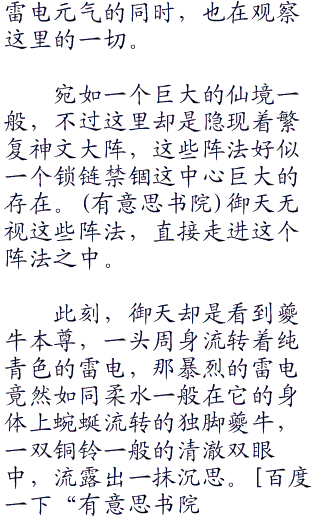 雷电元气的同时，也在观察
这里的一切。
宛如一个巨大的仙境一
般，不过这里却是隐现着繁
复神文大阵，这些阵法好似
一个锁链禁锢这中心巨大的
存在。(有意思书院)御天无
视这些阵法，直接走进这个
阵法之中。
此刻，御天却是看到夔
牛本尊，一头周身流转着纯
青色的雷电，那暴烈的雷电
竟然如同柔水一般在它的身
体上蜿蜒流转的独脚夔牛，
一双铜铃一般的清澈双眼
中，流露出一抹沉思。[百度
一下“有意思书院